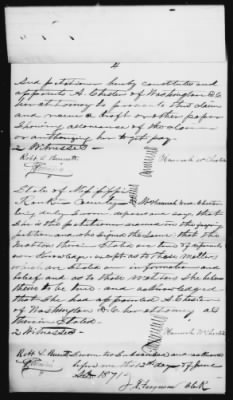 And petitioner hereby constitutes and
appoints A. Chester of Washington D.C.
her attorney to prosecute this claim
and receive a draft or other paper
showing allowance of the claim
or authorizing her to get pay.
2 Witnesses
Robt S. Burnett
State of Mississippi
Rankin County
being duly sworn deposes and says that
she is the petitioner named in the foregoing
petition and who signed the same that the
matters therein stated are true of deponents
own knowledge except as to those matters
which are stated on information and
belief and as to those matters she believes
them to be true and acknowledged
that she had appointed A Chester
of Washington D.C. her attorney as
therein stated.
2 Witnesses
Robt S. Burnett Sworn to & subscribed and acknowledged
before me this 12th day of June
1871
J. R. Ferguson Clk